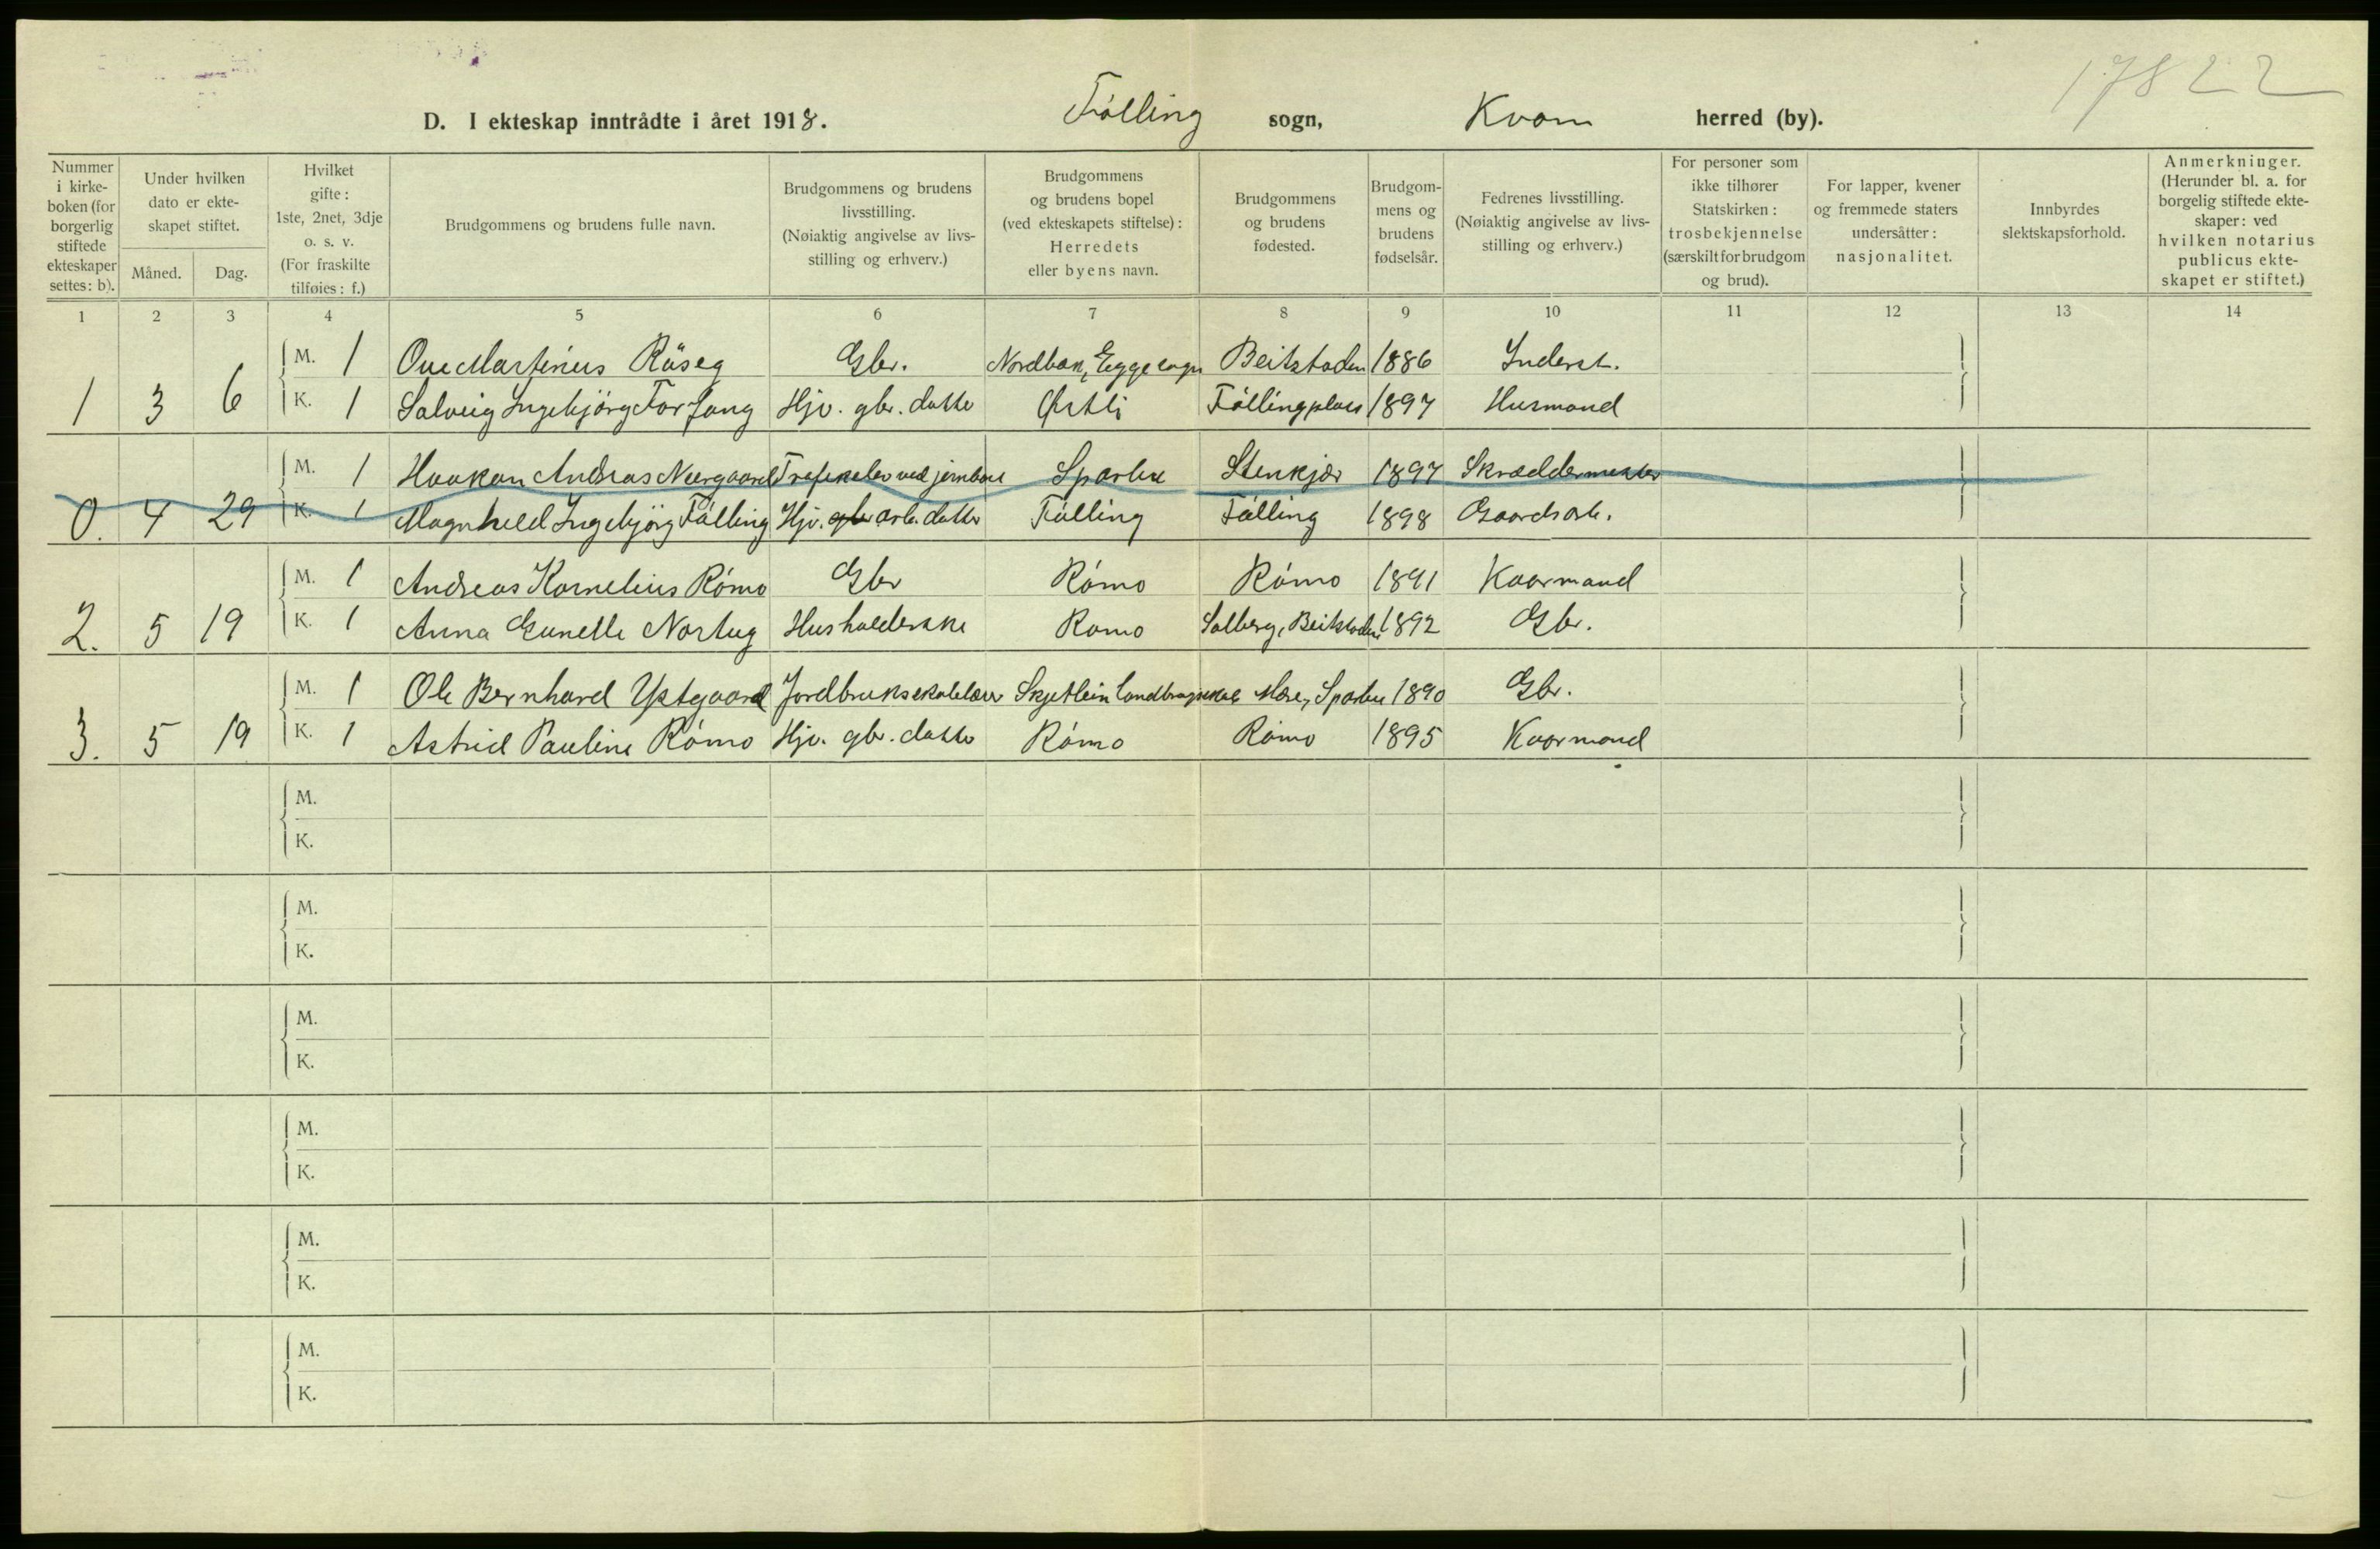 17822
D. I ekteskap inntrådte i året 1918. Følling sogn, Kvam herred (by).
Nummer i kirkeboken (for borgerlig stiftede ekteskaper settes: b).
Under hvilken dato er ekteskapet stiftet.
Måned. Dag.
Hvilket gifte: 1ste, 2net, 3dje o. s. v. (For fraskilte tilføies: f.)
Brudgommens og brudens fulle navn.
Brudgommens og brudens livsstilling. (Nøiaktig angivelse av livsstilling og erhverv.)
Brudgommens og brudens bopel (ved ekteskapets stiftelse): Herredets eller byens navn.
Brudgommens og brudens fødested.
Brudgommens og brudens fødselsår.
Fedrenes livsstilling. (Nøiaktig angivelse av livsstilling og erhverv.)
For personer som ikke tilhører Statskirken: trosbekjennelse (særskilt for brudgom og brud).
For lapper, kvener og fremmede staters undersåtter: nasjonalitet.
Innbyrdes slektskapsforhold.
Anmerkninger. (Herunder bl. a. for borgelig stiftede ekteskaper: ved hvilken notarius publicus ekteskapet er stiftet.)
1 2 3 4 5 6 7 8 9 10 11 12 13 14
M. 1 Ove Martinus Røseg Gbr. Nordbak, Egge sogn Beitstaden 1886 Inderst.
1 3 6 K. 1 Solveig Ingebjörg Forfang Hjv. gbr. datter ØstliFöllingplass 1897 Husmand
M. 1 Haakon Andreas Neergaard Trafikelev ved jernbane Sparbu Stenkjær 1897 Skræddermester
0. 4 29 K. 1 Magnhild Ingebjörg Fölling Hjv. gbr arb. datter Fölling Fölling 1898 Gaardsarb.
M. 1 Andreas Kornelius Römo Gbr Römo Römo 1891 Kaarmand
2. 5 19 K. 1 Anna Gunelle Nortug Husholderske Romo Solberg, Beitstaden 1892 Gbr.
M. 1 Ole Bernhard Ystgaard Jordbruksskolelærer Skjetlein landbrugsskole Mære, Sparbu 1890 Gbr.
3. 5 19 K. 1 Astrid Pauline Römo Hjv. gbr. datter Römo Römo 1895 Kaarmand
M.
K.
M.
K.
M.
K.
M.
K.
M.
K.
M.
K.